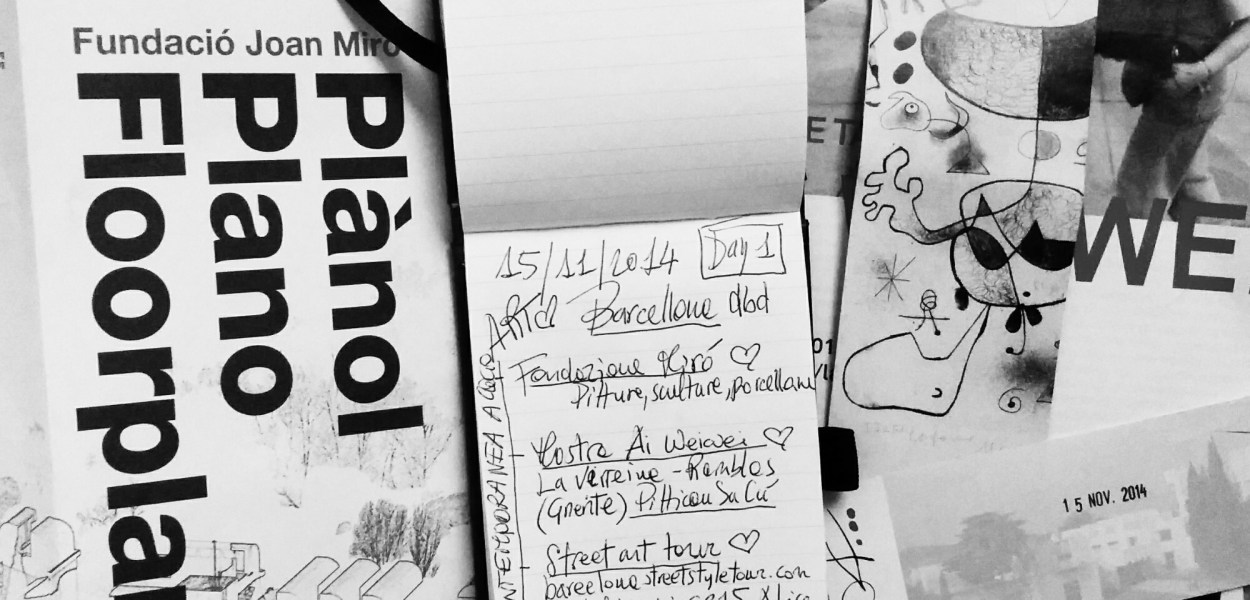 Fundació Joan Miró
Plànol
Plano
Floorplan
15/11/2014 Day 1
Barcellona dbd
Fondazione Miró ♡
Pitture, sculture, porcellane
Mostra Ai Weiwei ♡
La Virreina - Ramblas
(Gnente)
Street art tour ♡
barcelonastreetstyletour.com
ET
WE
15 NOV. 2014